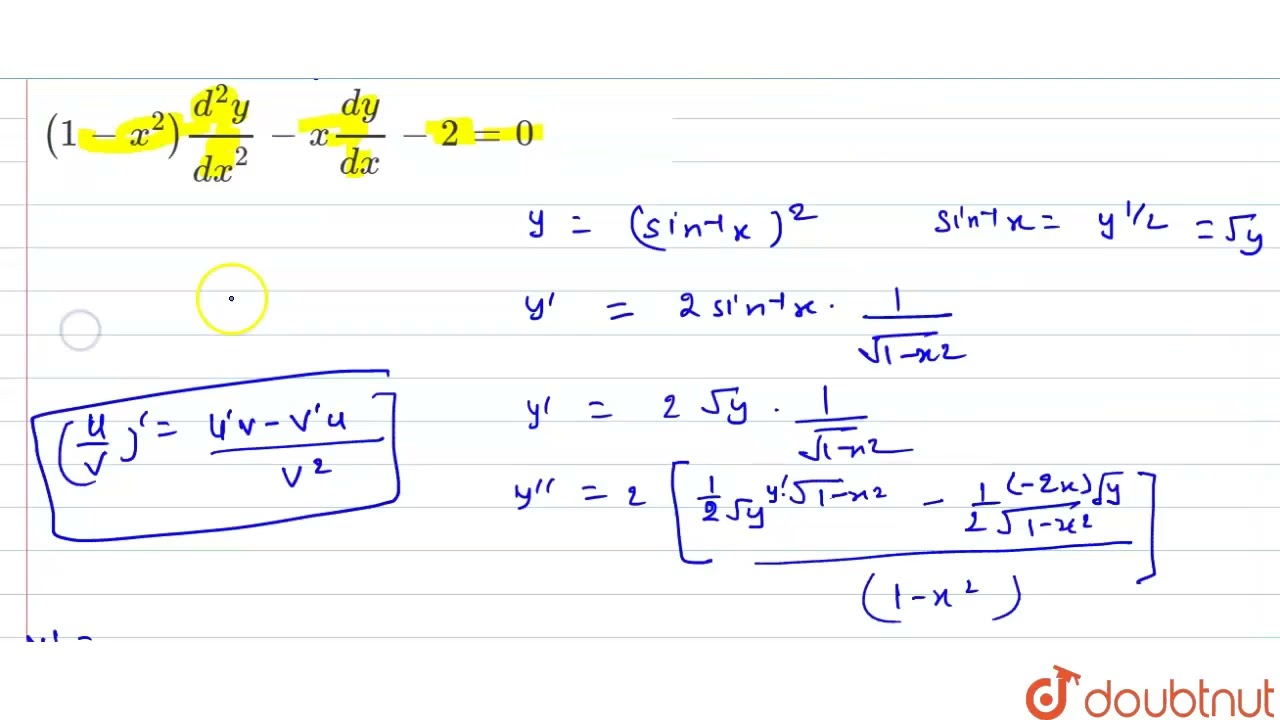 (1 − x²) d²y/dx² − x dy/dx − 2 = 0
y = (sin⁻¹x)² sin⁻¹x = y^1/2 = √y
y' = 2 sin⁻¹x · 1/√(1−x²)
(u/v)' = (u'v − v'u)/v²
y' = 2 √y · 1/√(1−x²)
y'' = 2 [ (1/2√y y' √(1−x²) − 1/(2√(1−x²)) (−2x) √y) / (1−x²) ]
doubtnut